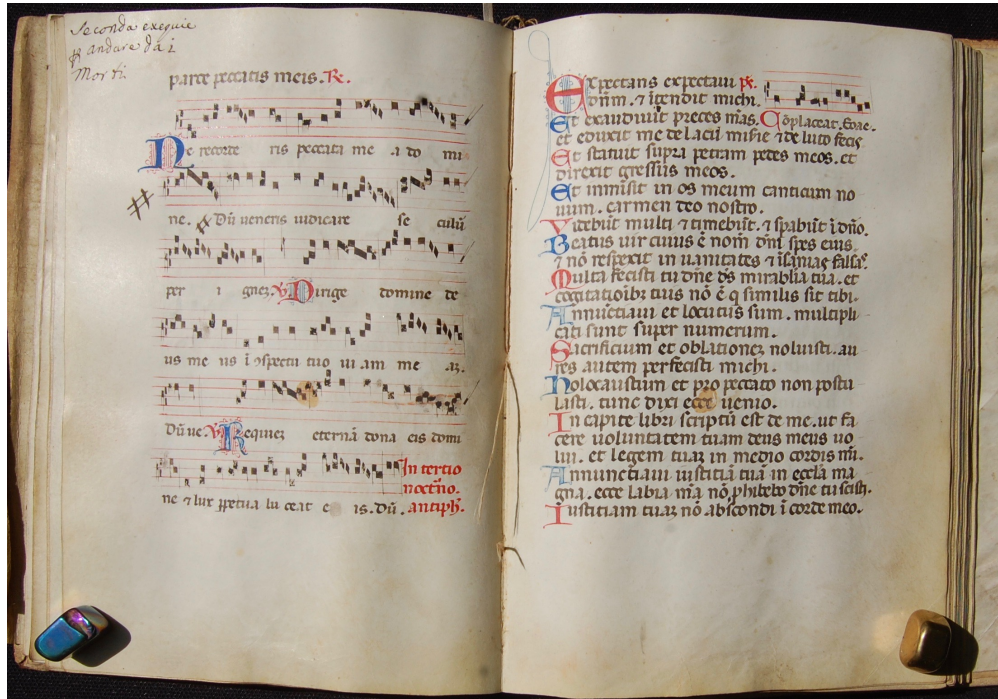 Seconda exequie
# andare da i
Morti.
parce peccatis meis. R.
Ne recorde ris peccata me a do mi
ne. Dū veneris iudicare se culū
per i gnez. V Dirige domine de
us me us ī ɔspectu tuo vi am me az.
Dū ve. V Requiez eternā dona eis domi
ne ⁊ lux ꝑpetua lu ceat e is. Dū.
In tertio
noct̄no.
antiph̄.
Expectans expectaui ps.
dn̄m. ⁊ ītendit michi.
Et exaudiuit preces mās. Cōplaceat. Eoae.
et eduxit me de lacu misie ⁊ de luto fecis
Et statuit supra petram pedes meos. et
direxit gressus meos.
Et inmisit in os meum canticum no
uum. carmen deo nostro.
Videbūt multi ⁊ timebūt. ⁊ spabūt ī dn̄o.
Beatus uir cuius ē nom̄ dn̄i spes eius.
⁊ nō respexit in uanitates ⁊ īsanias falsas.
Multa fecisti tu dn̄e ds̄ mirabilia tua. et
cogitatioibꝫ tuis nō ē q similis sit tibi.
Annuntiaui et locutus sum. multipli
cati sunt super numerum.
Sacrificium et oblationez noluisti. au
res autem perfecisti michi.
Holocaustum et pro peccato non postu
lasti. tunc dixi ecce uenio.
In capite libri scriptū est de me. ut fa
cere uoluntatem tuam deus meus uo
lui. et legem tuaz in medio cordis mī.
Annunctiaui iustitiā tuā in ecclā ma
gna. ecce labia mā nō ꝓhibebo dn̄e tu scisti.
Iustitiam tuaz nō abscondi ī corde meo.